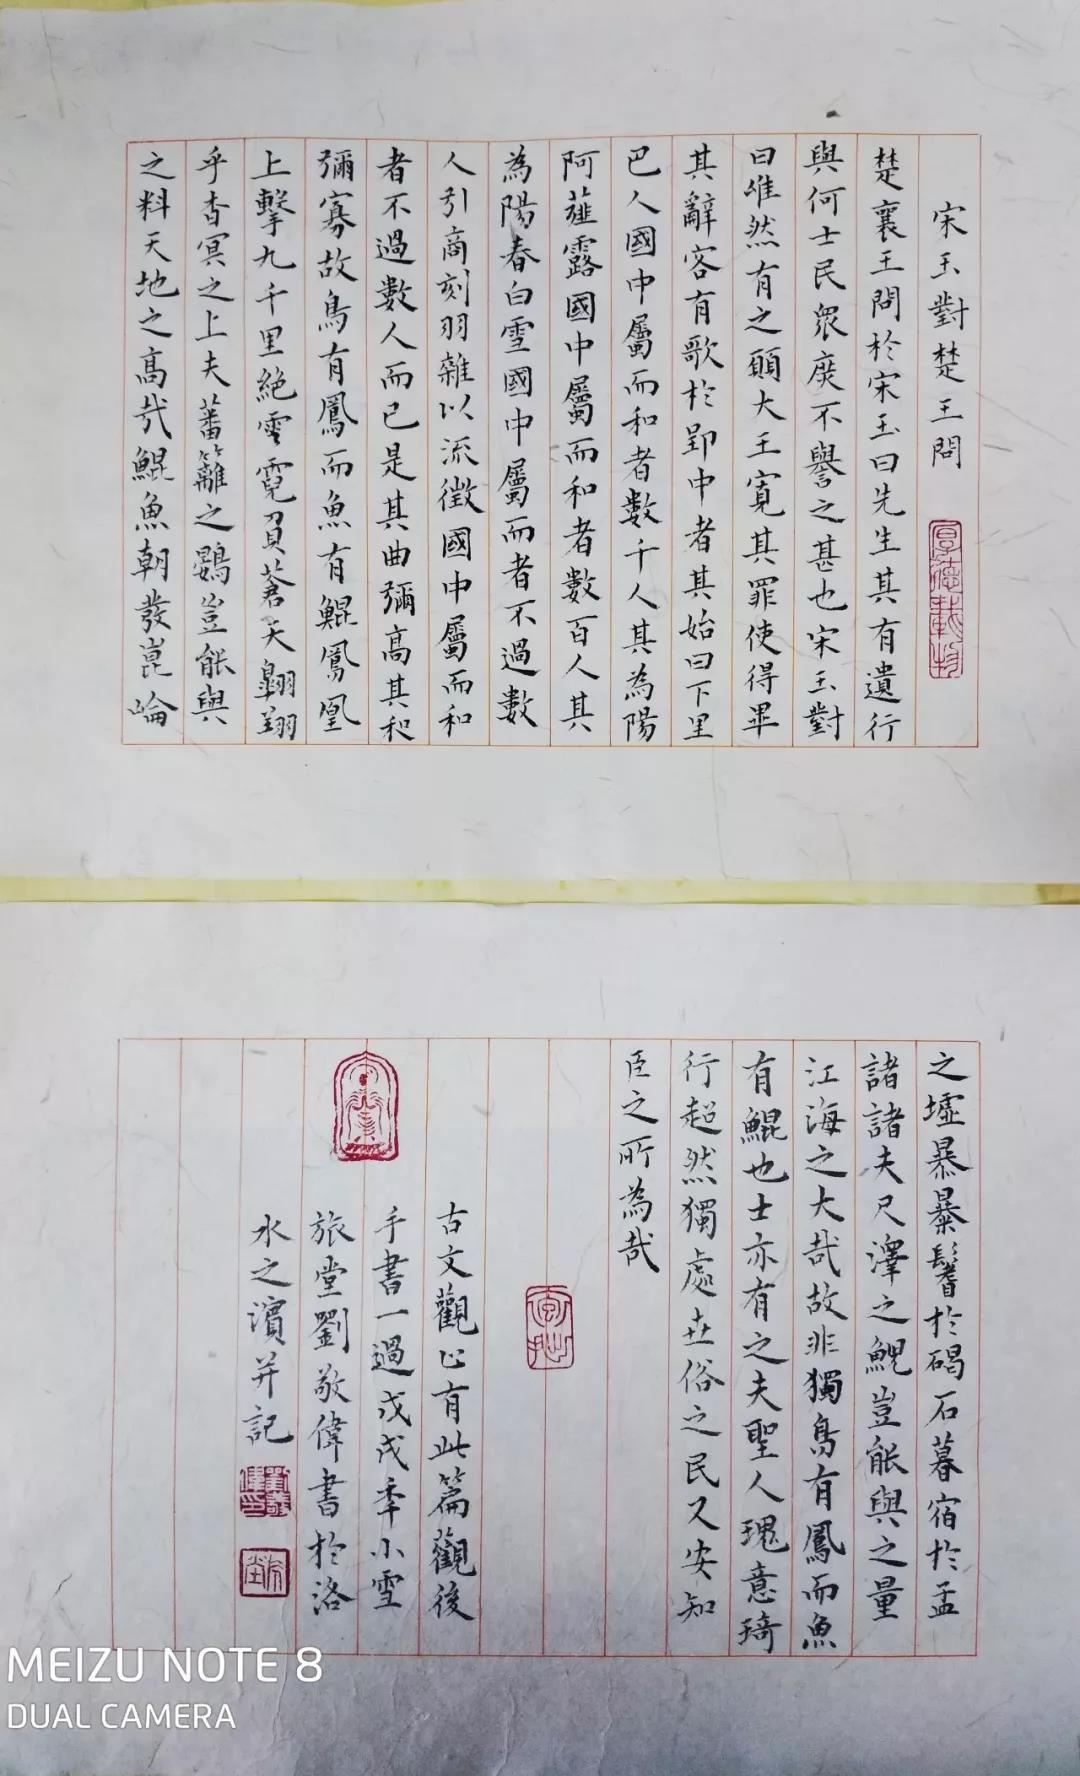 宋玉對楚王問
厚德載物
楚襄王問於宋玉曰先生其有遺行
與何士民眾庶不譽之甚也宋玉對
曰唯然有之願大王寬其罪使得畢
其辭客有歌於郢中者其始曰下里
巴人國中屬而和者數千人其為陽
阿薤露國中屬而和者數百人其
為陽春白雪國中屬而者不過數
人引商刻羽雜以流徵國中屬而和
者不過數人而已是其曲彌高其和
彌寡故鳥有鳳而魚有鯤鳳凰
上擊九千里絕雲霓負蒼天翱翔
乎杳冥之上夫蕃籬之鷃豈能與
之料天地之高哉鯤魚朝發崑崙
之墟暴暴鬐於碣石暮宿於孟
諸諸夫尺澤之鯢豈能與之量
江海之大哉故非獨鳥有鳳而魚
有鯤也士亦有之夫聖人瑰意琦
行超然獨處世俗之民又安知
臣之所為哉
守拙
古文觀止有此篇觀後
手書一過戊戌年小雪
旅堂劉敬偉書於洛
水之濱并記
MEIZU NOTE 8
DUAL CAMERA